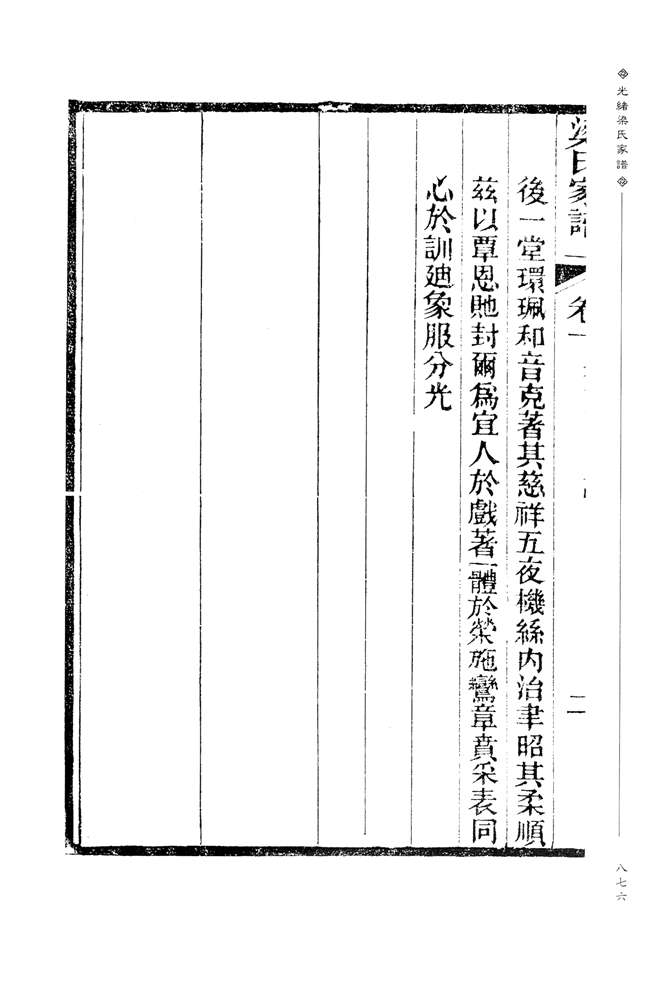 光緒梁氏家譜
梁氏家譜 卷一 二
後一堂環珮和音克著其慈祥五夜機絲內治聿昭其柔順
茲以覃恩貤封爾爲宜人於戲著一體於榮施鸞章賁采表同
心於訓廸象服分光
八七六